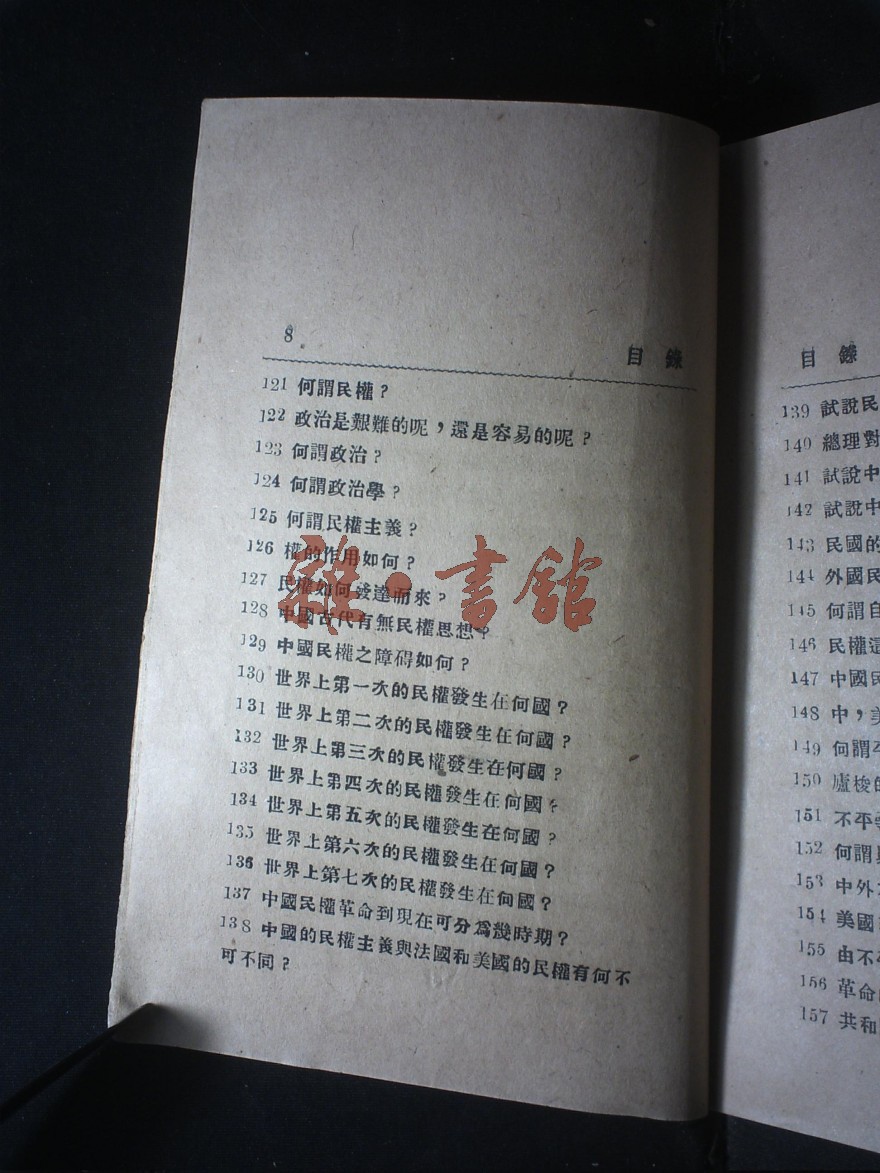 8
目錄
121 何謂民權？
122 政治是艱難的呢，還是容易的呢？
123 何謂政治？
124 何謂政治學？
125 何謂民權主義？
126 權的作用如何？
127 民權如何發達而來？
128 中國古代有無民權思想？
129 中國民權之障碍如何？
130 世界上第一次的民權發生在何國？
131 世界上第二次的民權發生在何國？
132 世界上第三次的民權發生在何國？
133 世界上第四次的民權發生在何國？
134 世界上第五次的民權發生在何國？
135 世界上第六次的民權發生在何國？
136 世界上第七次的民權發生在何國？
137 中國民權革命到現在可分爲幾時期？
138 中國的民權主義與法國和美國的民權有何不
可不同？
雜·書館
目錄
139 試說民
140 總理對
141 試說中
142 試說中
143 民國的
144 外國民
145 何謂自
146 民權這
147 中國民
148 中，美
149 何謂平
150 廬梭的
151 不平等
152 何謂
153 中外
154 美國
155 由不
156 革命
157 共和